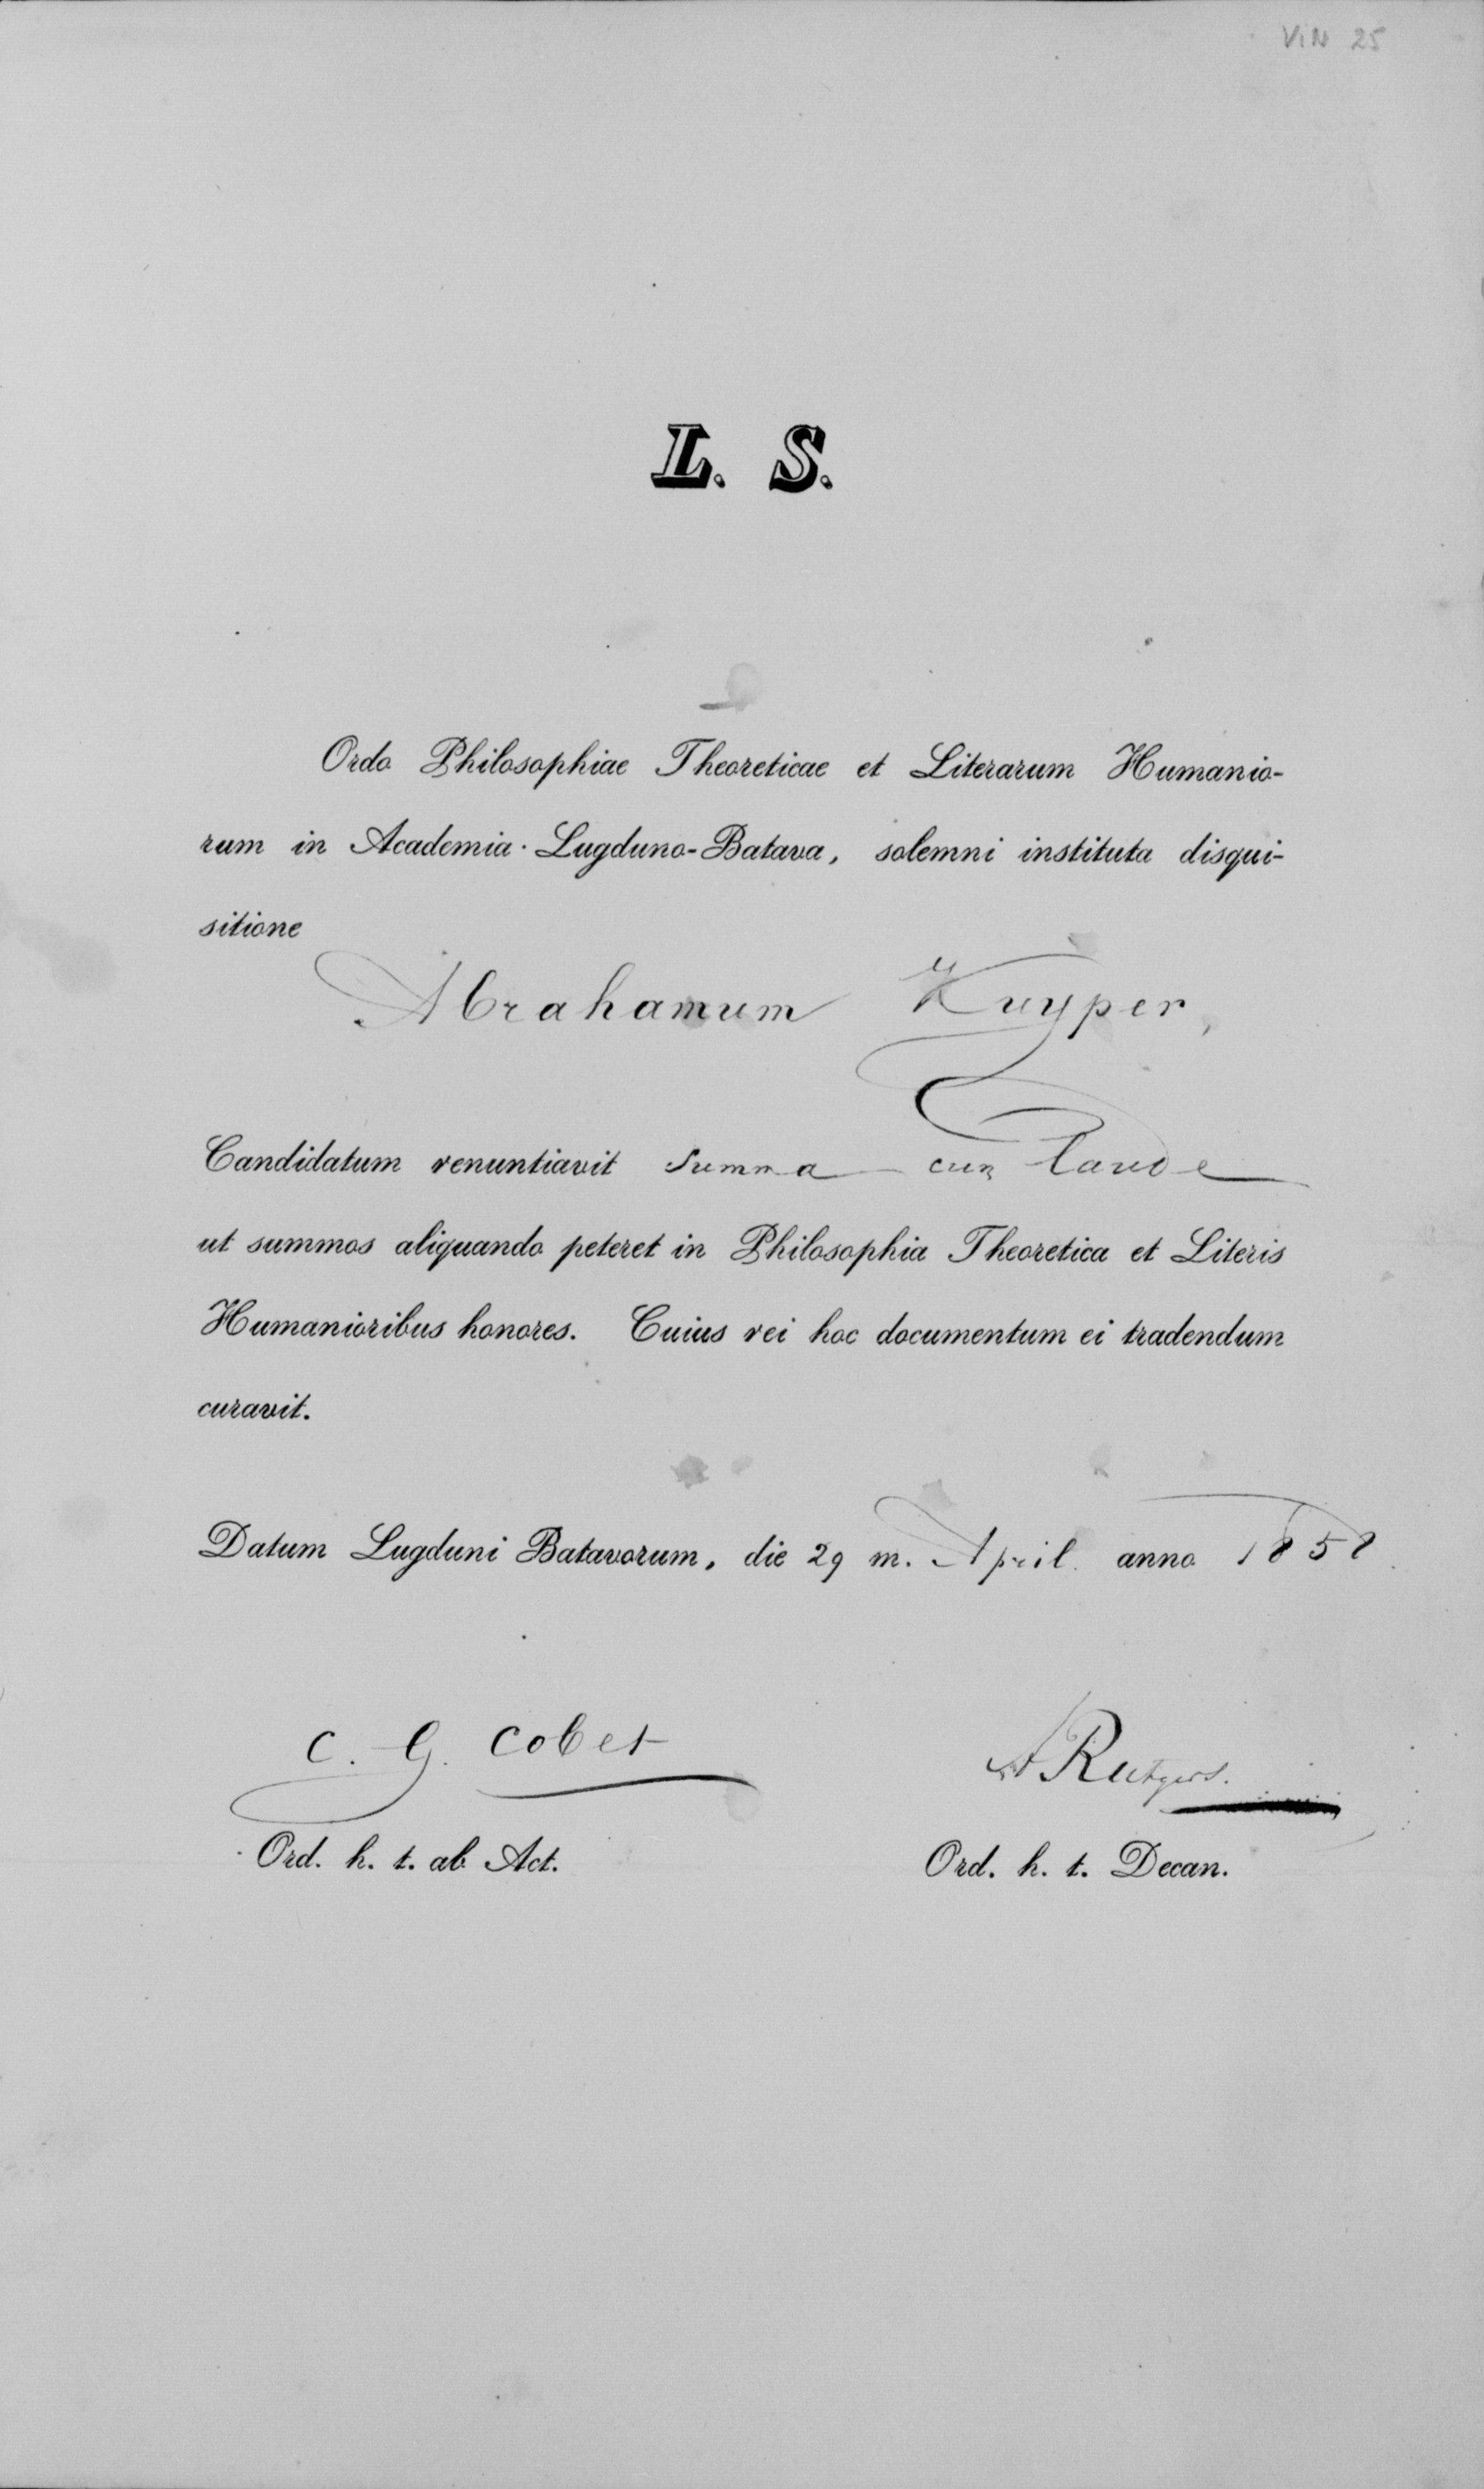 VIN 25
L. S.
Ordo Philosophiae Theoreticae et Literarum Humanio-
rum in Academia Lugduno-Batava, solemni instituta disqui-
sitione
Abrahamum Kuyper,
Candidatum renuntiavit summa cum laude
ut summos aliquando peteret in Philosophia Theoretica et Literis
Humanioribus honores. Cuius rei hoc documentum ei tradendum
curavit.
Datum Lugduni Batavorum, die 29 m. April. anno 1858
C. G. Cobet
A Rutgers.
Ord. h. t. ab Act.
Ord. h. t. Decan.